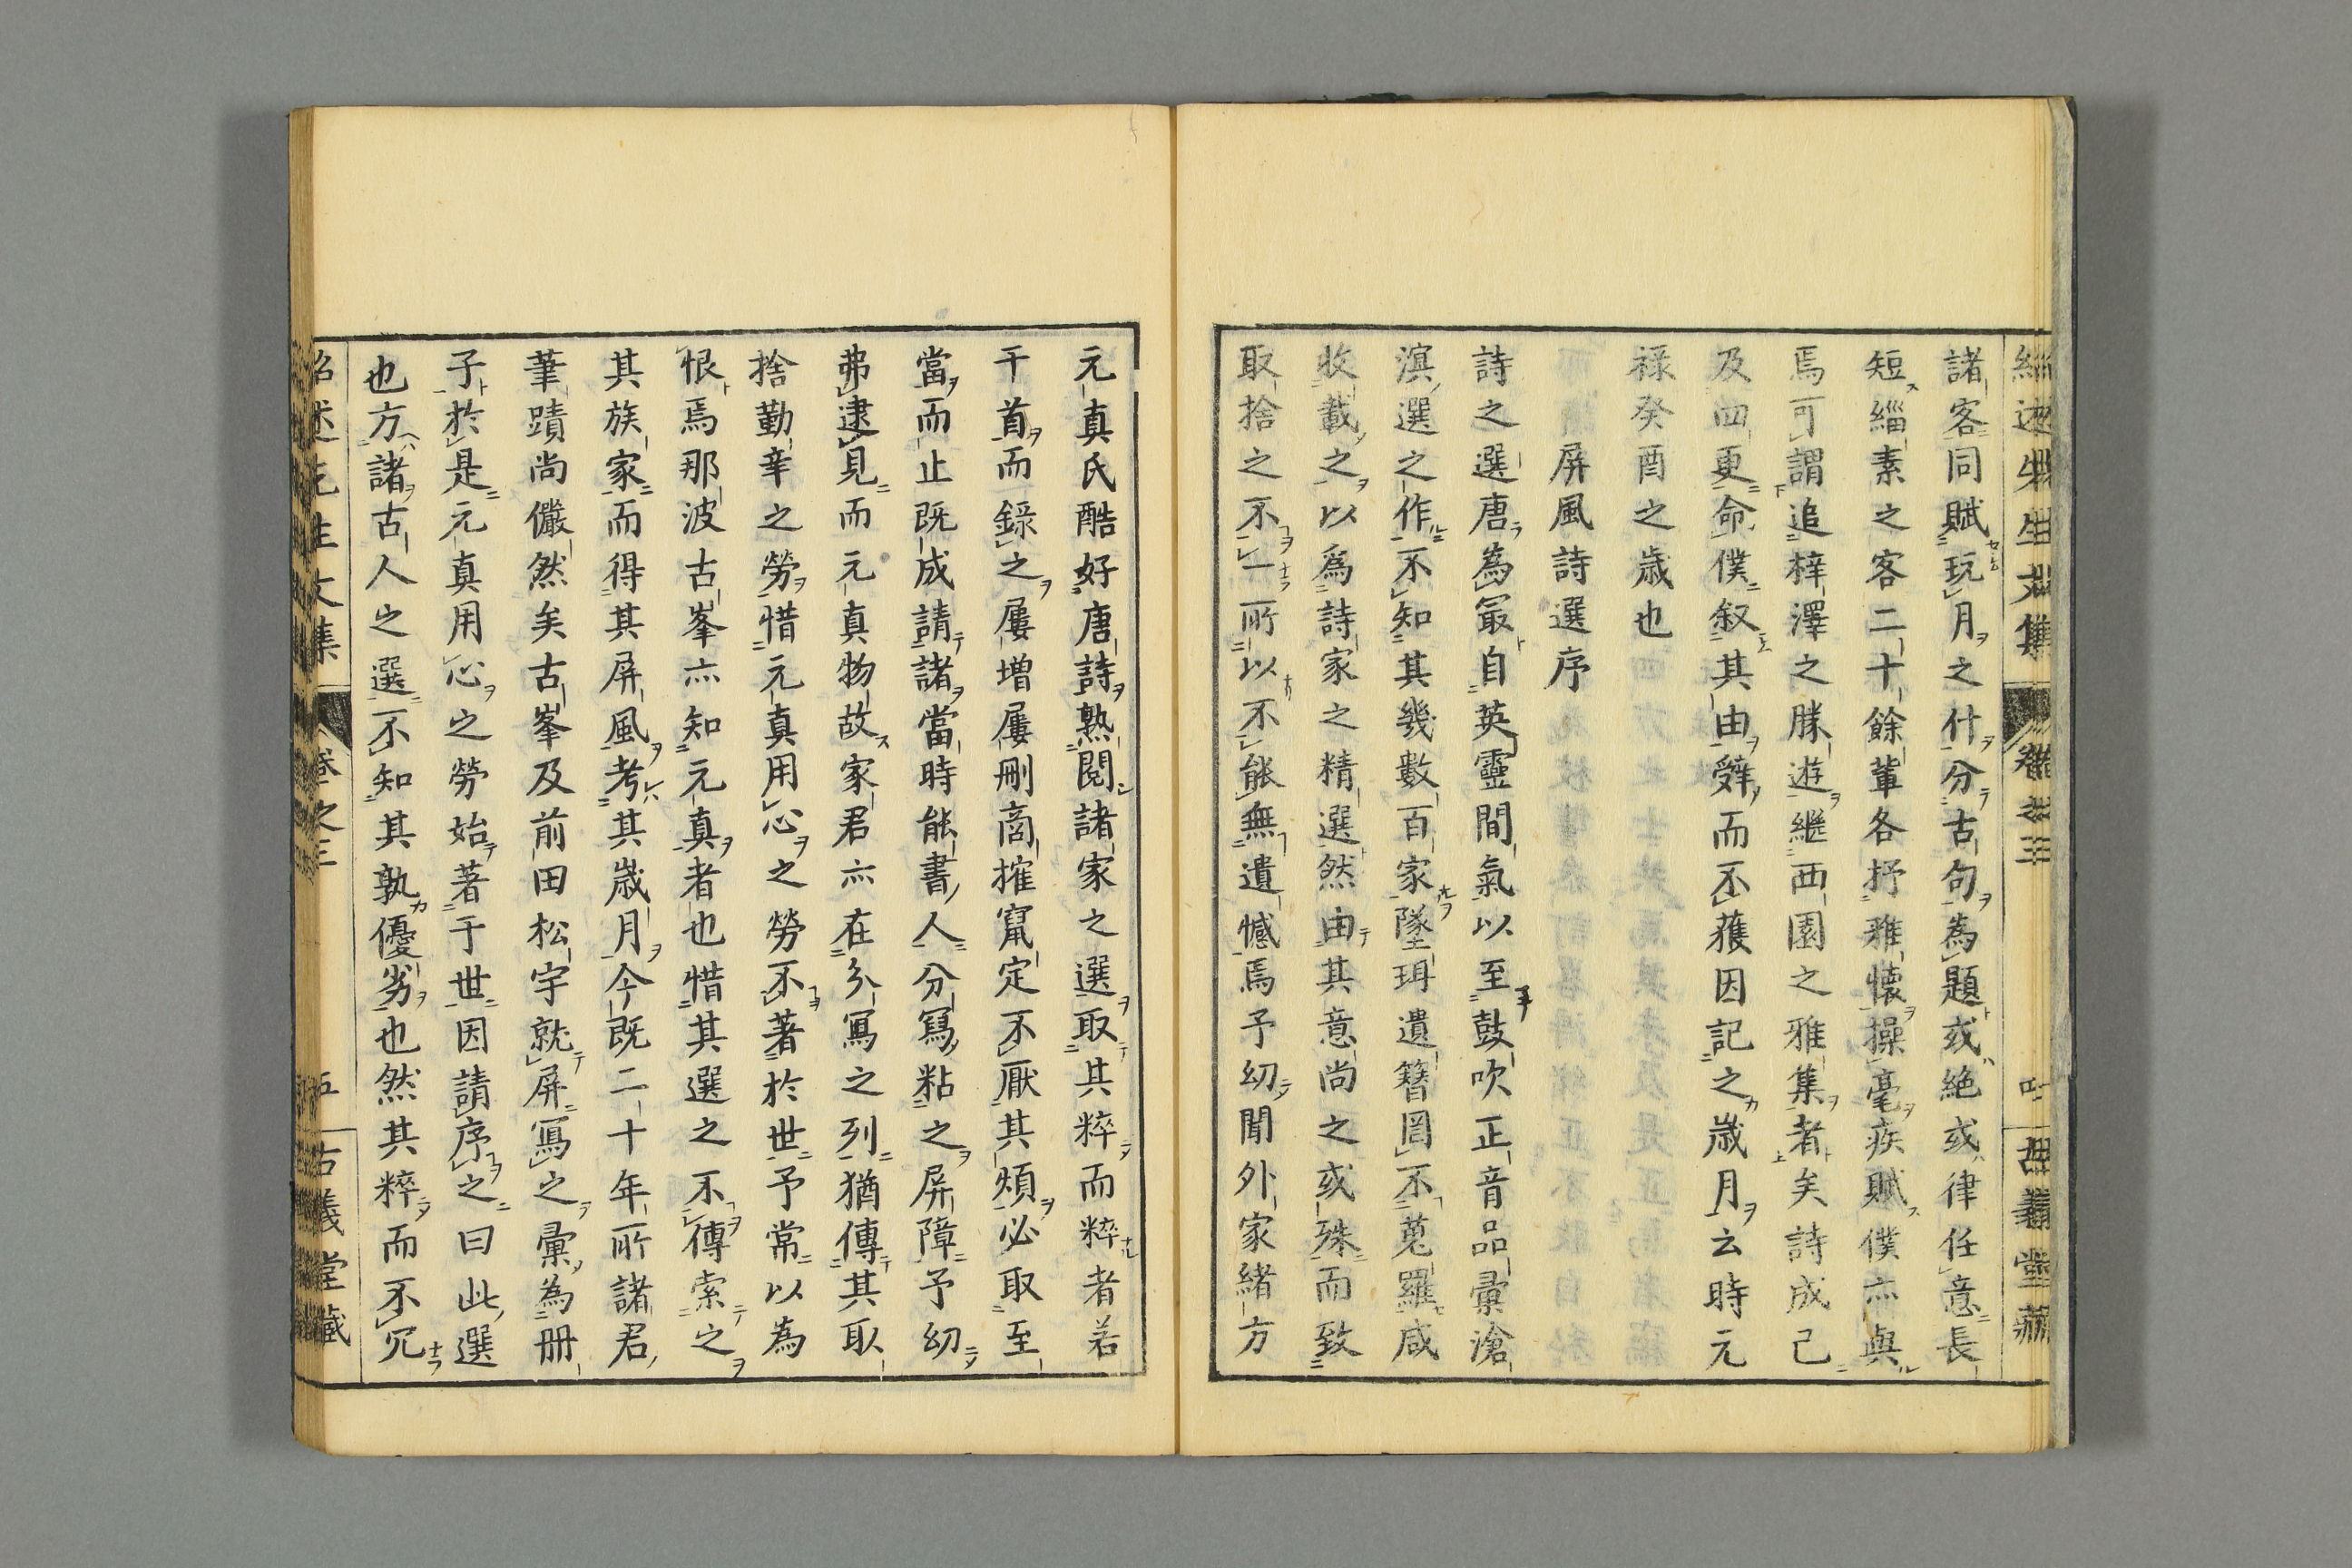 諸客同賦玩月之什分古句為題或絶或律任意長
短緇素之客二十餘軰各抒雅懷操毫疾賦僕亦與
焉可謂追梓澤之勝遊繼西園之雅集者矣詩成已
及四更命僕叙其由辤而不獲因記之歳月云時元
禄癸酉之歳也
屏風詩選序
詩之選唐為冣自英靈間氣以至鼓吹正音品彙滄
溟選之作不知其幾數百家墜珥遺簪罔不蒐羅咸
收載之以爲詩家之精選然由其意尚之或殊而致
取捨之不一所以不能無遺憾焉予幼聞外家緒方
元真氏酷好唐詩熟閲諸家之選取其粹而粹者若
干首而録之屢増屢刪商搉竄定不厭其煩必取至
當而止既成請諸當時能書人分寫粘之屏障予幼
弗逮見而元真物故家君亦在分寫之列猶傳其取
捨勤辛之勞惜元真用心之勞不著於世予常以為
恨焉那波古峯亦知元真者也惜其選之不傳索之
其族家而得其屏風考其歳月今既二十年所諸君
筆蹟尚儼然矣古峯及前田松宇就屏寫之彙為册
子於是元真用心之勞始著于世因請序之曰此選
也方諸古人之選不知其孰優劣也然其粹而不冗
紹述先生文集
卷之三
五
古義堂藏